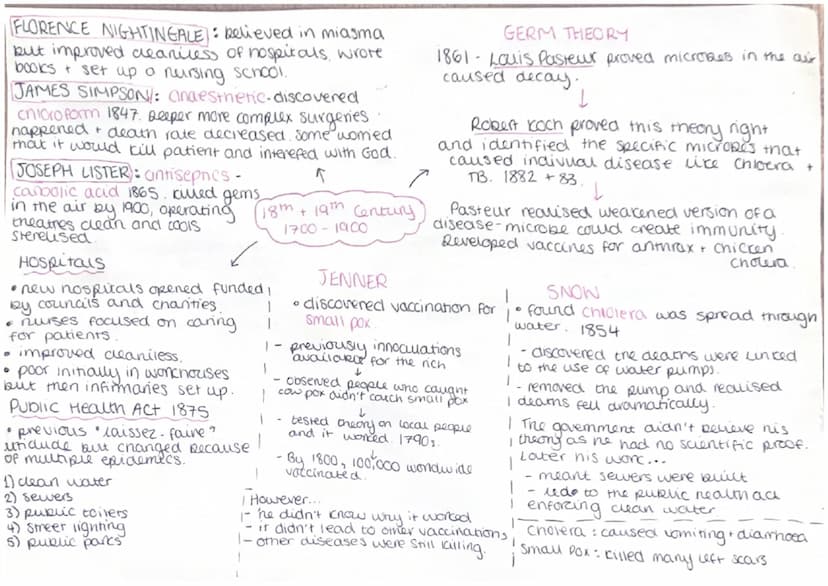 FLORENCE NIGHTINGALE: believed in miasma
but improved cleanliness of hospitals. wrote
books + set up a nursing school.
JAMES SIMPSON: anaesthetic - discovered
chloroform 1847. Deeper more complex surgeries
happened + death rate decreased. Some worried
that it would kill patient and interfered with God.
JOSEPH LISTER: antiseptics -
carbolic acid 1865. Killed germs
in the air by 1900, operating
theatres clean and tools
sterelised.
GERM THEORY
1861 - Louis Pasteur proved microbes in the air
caused decay.
Robert Koch proved this theory right
and identified the specific microbes that
caused indivual disease like Cholera +
TB. 1882 + 83.
Pasteur realised weakened version of a
disease-microbe could create immunity.
Developed vaccines for anthrax + chicken
cholera.
18th + 19th Century
1700 - 1900
HOSPITALS
• new hospitals opened funded
by councils and charities.
• nurses focused on caring
for patients.
• improved cleanliness.
• poor initially in workhouses
but then infirmaries set up.
PUBLIC HEALTH ACT 1875
• previous "laissez-faire"
attitude but changed because
of multiple epidemics.
1) clean water
2) sewers
3) public toilets
4) street lighting
5) public parks
JENNER
• discovered vaccination for
small pox.
- previously innoculations
available for the rich
- observed people who caught
cow pox didn't catch small pox
- tested theory on local people
and it worked. 1790s.
- By 1800, 100,000 worldwide
vaccinated.
However...
- he didn't know why it worked
- it didn't lead to other vaccinations
- other diseases were still killing.
SNOW
• found cholera was spread through
water. 1854
- discovered the deaths were linked
to the use of water pumps.
- removed the pump and realised
deaths fell dramatically.
The government didn't believe his
theory as he had no scientific proof.
Later his work...
- meant sewers were built
- led to the public health act
enforcing clean water
cholera: caused vomiting + diarrhoea
small pox: killed many left scars